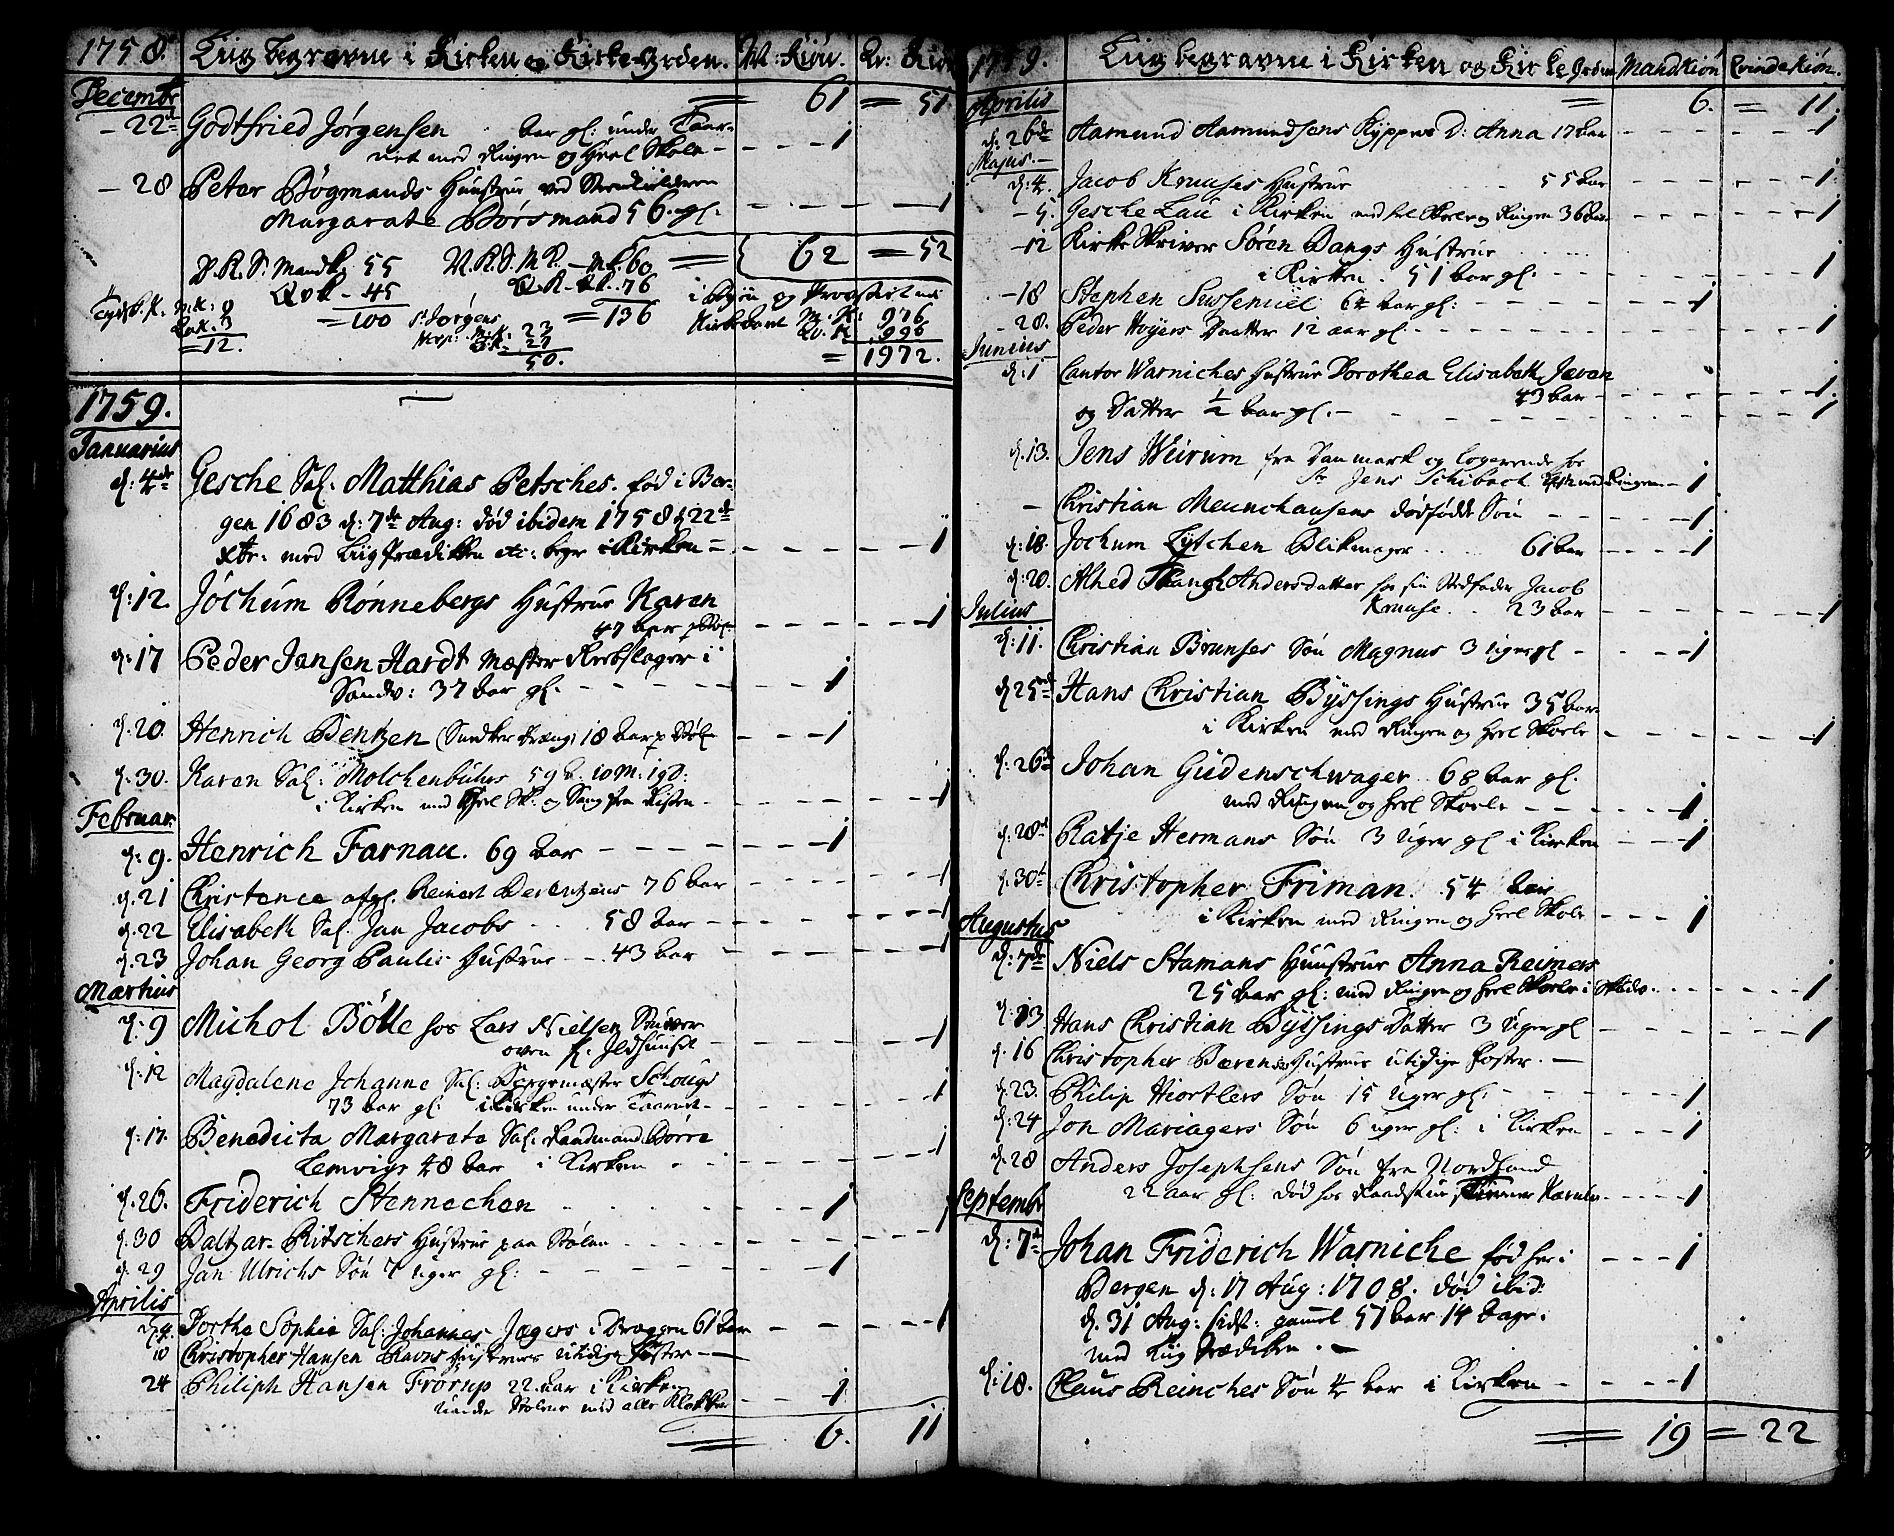 1758. Liig begravne i Kirken og Kirke-Gorden. M: Kiön. Qv: Kiön
Decembr = 61 = 51
- 22de Godtfried Jørgensen Aar gl: under Taar-
net med Ringen og Heel Skole - - - 1
- 28 Peter Bøgmands Huustrue ved
Margarate Börsmand 56. gl. - - - 1
D.K.S. Mandk. 55 N.K.S. MK. - Mk. 60 = 62 = 52
Qvk - 45 Q.K. 76
= 100 = 136
Tydsk. K. M: K: 9
Qv.K. 3
= 12.
St. Jørgens
Hosp: M: K: 23
Q.K. 27
50.
i Byen og Provstiet udi
M: K: 976
Qv. K 996
= 1972.
1759.
Januarius
d: 4de Gesche Sal. Matthias Petsches. fød i Ber-
gen 1683 d: 7de Aug: død ibidem 1758 d 22de
Xbr. med Liig Prædikken etc: begr i Kirken - - - 1
d: 12. Jochum Rönnebergs Hustrue Karen
47 Aar - - - 1
d: 17 Peder Jansen Hardt Mæster Rebslager i
Sandv: 37 Aar gl. - - - 1
d. 20. Henrich Bentzen (Snedker Dreng) 18 Aar p Støl - - - 1
d. 30. Karen Sal. Molckenbuhrs 59 A: 10 M: 19 D:
i Kirken med Heel Sk: og Sang fra Kisten - - - 1
Februar
d: 9. Henrich Farnau. 69 Aar - - - 1
d. 21 Christence afgl. Reinert Berentzens 76 Aar - - - 1
d. 22 Elisabeth Sal. Jan Jacobs 58 Aar - - - 1
d. 23 Johan Georg Paulis Hustrue - - 43 Aar - - - 1
Martius
d: 9 Michel Bölle hos Lars Nielsen
oven f. Ildhuuset - - - 1
d. 12 Magdalene Johanne Sal: Borgemæster Schougs
73 Aar gl. i Kirken under Taarnet - - - 1
d: 17. Benedicta Margareta Sal: Raadmand Dörre
Lemvigs 48 Aar i Kirken - - - 1
d. 26. Friderich Stennechen - - - 1
d. 30 Baltzar Ritschers Hustrue paa Stølen - - - 1
d. 29 Jan Ulrichs Søn 7 uger gl: - - - 1
Aprilis
d. 4. Dorthe Sophie Sal: Johannes Jægers i Bryggen 61 Aar - - - 1
10 Christopher Hansen Hustrues utidige Foster -
24 Philiph Hansen Frörup 22 Aar i Kirken
under Stolene med alle Klokker - - 1
= 6. 11
1759. Liig begravne i Kirken og Kirke Jorden Mandkiön Qvindekiön.
Aprilis = 6. = 11.
d: 26de Aamund Aamundsens Kyppers D: Anna 17 Aar - - - 1
Majus. -
d: 4. Jacob Kruuses Hustrue 55 Aar - - - 1
- 5 Gesche Lau i Kirken med hel Skole og Ringen 36 Aar - - - 1
- 12 Kirke Skriver Søren Bangs Hustrue
i Kirken. 51 Aar gl. - - - 1
- 18 Stephen 64 Aar gl: - - - 1
- 28. Peder Hoyers Daatter 12 aar gl - - - 1
Junius
d: 1 Cantor Warniches Hustrue Dorothea Elisabeth
43 Aar - - - 1
og Datter ½ Aar gl. - - - 1
d. 13. Jens Weirum fra Danmark og logerende hos
Sr Jens Schibach med Ringen - 1
- Christian Meunchausens dødfødde Søn - - - 1
d: 18. Jochum Lytchen Blikmager 61 Aar - - - 1
d: 20. Alhed Andersdatter hos sin Stedfader Jacob
Kruuse. 23 Aar - - - 1
Julius
d: 11. Christian Brunses Søn Magnus 3 uger gl - - - 1
d 25de Hans Christian Byssings Hustrue 35 Aar
i Kirken med Ringen og Heel Skole - - - 1
d: 26de Johan Gudenschwager 68 Aar gl.
med Ringen og Heel Skole - - - 1
d: 28de Ratje Hermans Søn 3 Uger gl i Kirken - - - 1
d. 30te Christopher Friman. 54 Aar
i Kirken med Ringen og heel Skole - - - 1
Augustus
d: 7de Niels Stamans Huustrue Anna Reimers
25 Aar gl: med Ringen og Heel Skole i - - - 1
d: 13 Hans Christian Byssings Datter 3 Uger gl - - - 1
d. 16 Christopher Berens Hustrues utidige Foster. -
d. 23. Philip Hiortlers Søn 15 uger gl: - - - 1
d: 24 Jon Mariagers Søn 6 uger gl: i Kirken - - - 1
d: 28 Anders Josephsens Søn fra Nordland
22 aar gl: død hos - - - 1
Septembr
d: 7de Johan Friderich Warniche fød her i - - - 1
Bergen d: 17 Aug: 1708. død ibid:
d. 31 Aug: sidst: gammel 51 Aar 14 dage.
med Liig Prædiken. -
d: 18. Claus Reinches Søn 4 Aar i Kirken - - - 1
= 19 = 22